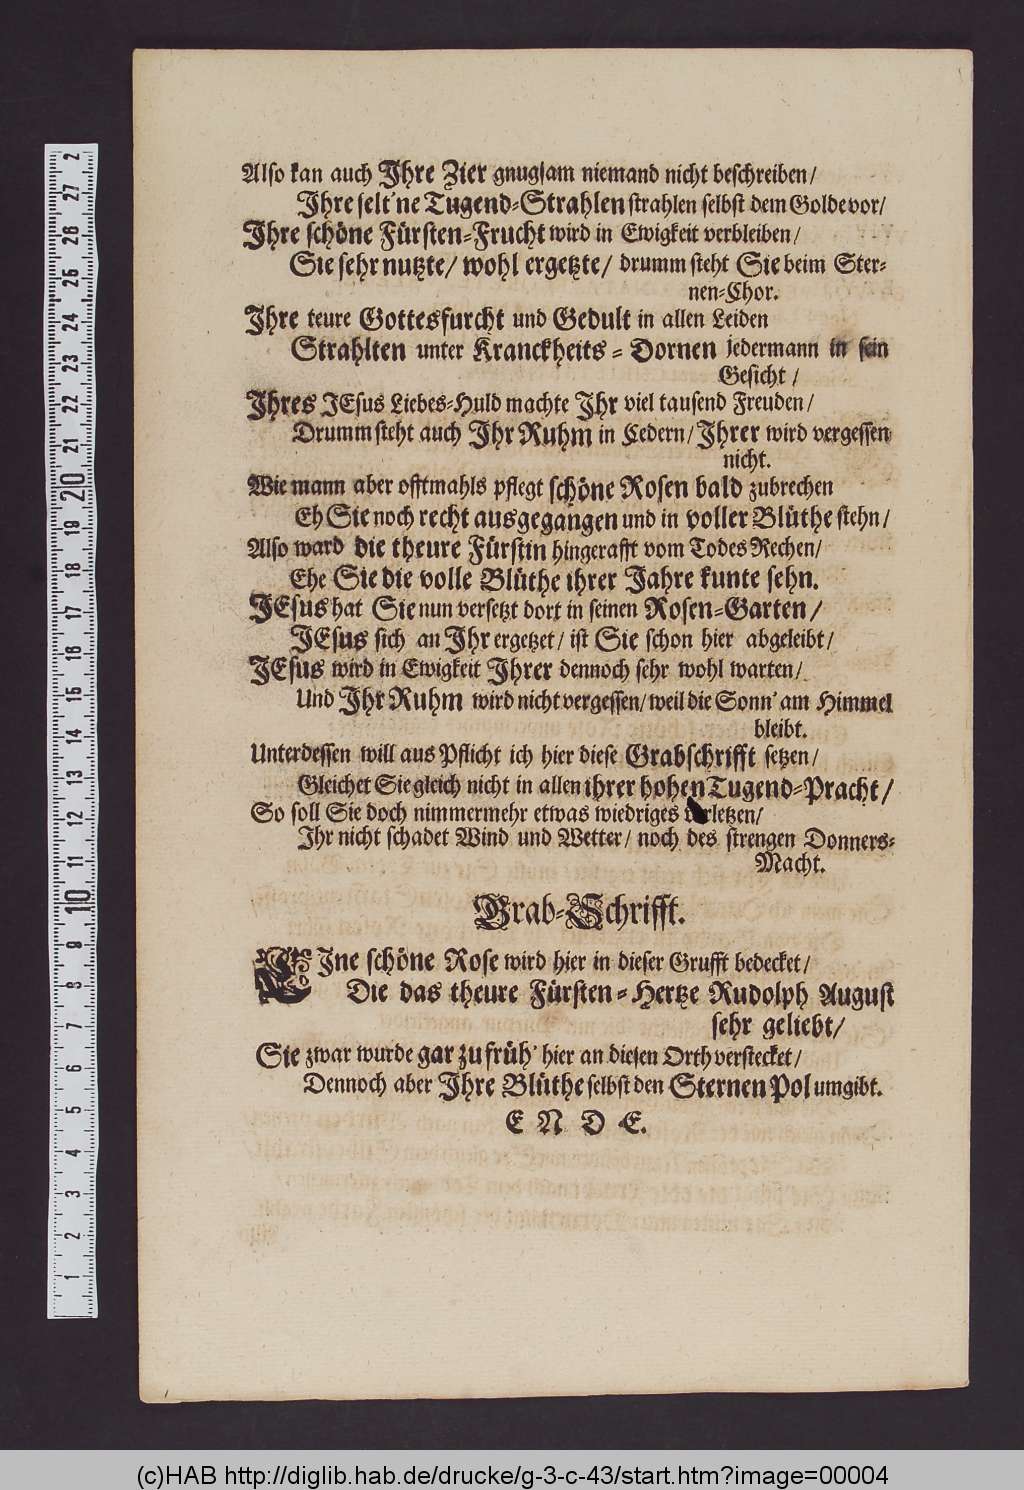 Also kan auch Ihre Zier gnugsam niemand nicht beschreiben/
Ihre selt'ne Tugend-Strahlen strahlen selbst dem Golde vor/
Ihre schöne Fürsten-Frucht wird in Ewigkeit verbleiben/
Sie sehr nutzte/ wohl ergetzte/ drumm steht Sie beim Ster-
nen-Chor.
Ihre teure Gottesfurcht und Gedult in allen Leiden
Strahlten unter Kranckheits-Dornen jedermann in sein
Gesicht/
Ihres JEsus Liebes-Huld machte Ihr viel tausend Freuden/
Drumm steht auch Ihr Ruhm in Cedern/ Ihrer wird vergessen
nicht.
Wie mann aber offtmahls pflegt schöne Rosen bald zubrechen
Eh Sie noch recht ausgegangen und in voller Blüthe stehn/
Also ward die theure Fürstin hingerafft vom Todes Rechen/
Ehe Sie die volle Blüthe ihrer Jahre kunte sehn.
JEsus hat Sie nun versetzt dort in seinen Rosen-Garten/
JEsus sich an Ihr ergetzet/ ist Sie schon hier abgeleibt/
JEsus wird in Ewigkeit Ihrer dennoch sehr wohl warten/
Und Ihr Ruhm wird nicht vergessen/ weil die Sonn' am Himmel
bleibt.
Unterdessen will aus Pflicht ich hier diese Grabschrifft setzen/
Gleichet Sie gleich nicht in allen ihrer hohen Tugend-Pracht/
So soll Sie doch nimmermehr etwas wiedriges verletzen/
Ihr nicht schadet Wind und Wetter/ noch des strengen Donners-
Macht.
Grab-Schrifft.
EIne schöne Rose wird hier in dieser Grufft bedecket/
Die das theure Fürsten-Hertze Rudolph August
sehr geliebt/
Sie zwar wurde gar zu früh' hier an diesen Orth verstecket/
Dennoch aber Ihre Blüthe selbst den Sternen Pol umgibt.
E N D E.
1
2
3
4
5
6
7
8
9
10
11
12
13
14
15
16
17
18
19
20
21
22
23
24
25
26
27
2
(c)HAB http://diglib.hab.de/drucke/g-3-c-43/start.htm?image=00004